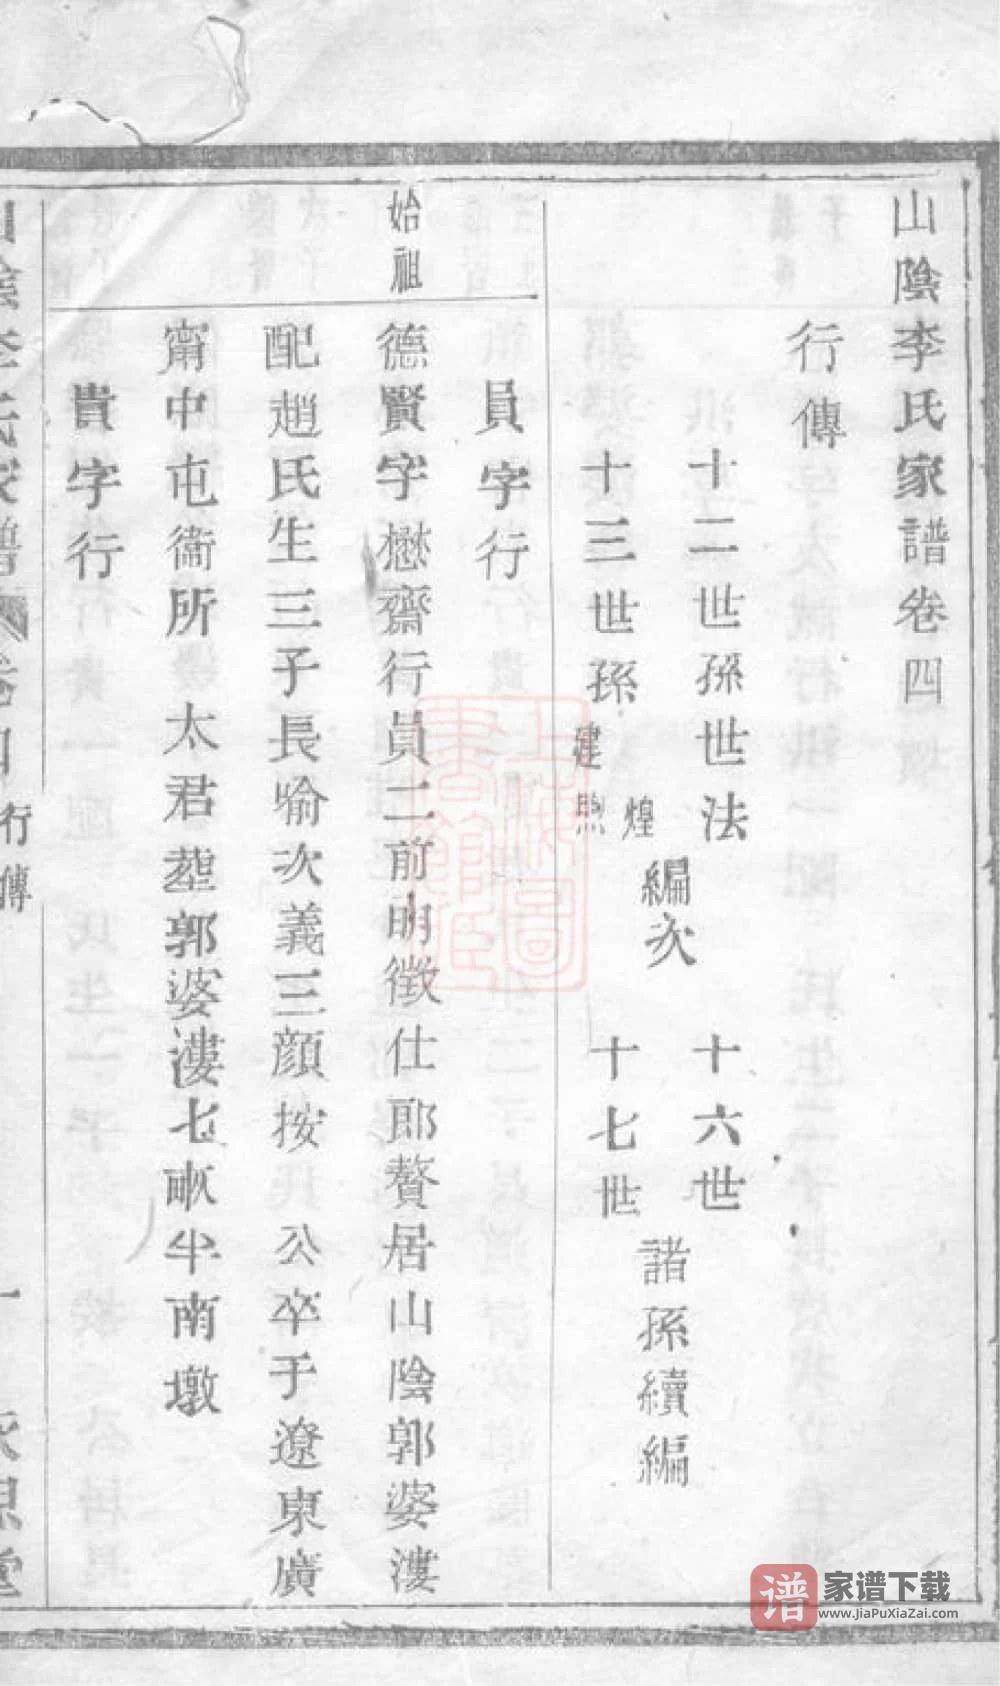 山陰李氏家譜卷四
行傳
十二世孫世法
十三世孫建煌
煦
編次
十六世
十七世
諸孫續編
員字行
始祖
德賢字懋齋行員二前明徵仕郎贅居山陰郭婆漊
配趙氏生三子長喻次義三顏按 公卒于遼東廣
甯中屯衞所 太君塟郭婆漊七畝半南墩
貴字行
行傳
一
家谱下载
www.JiaPuXiaZai.com
谱